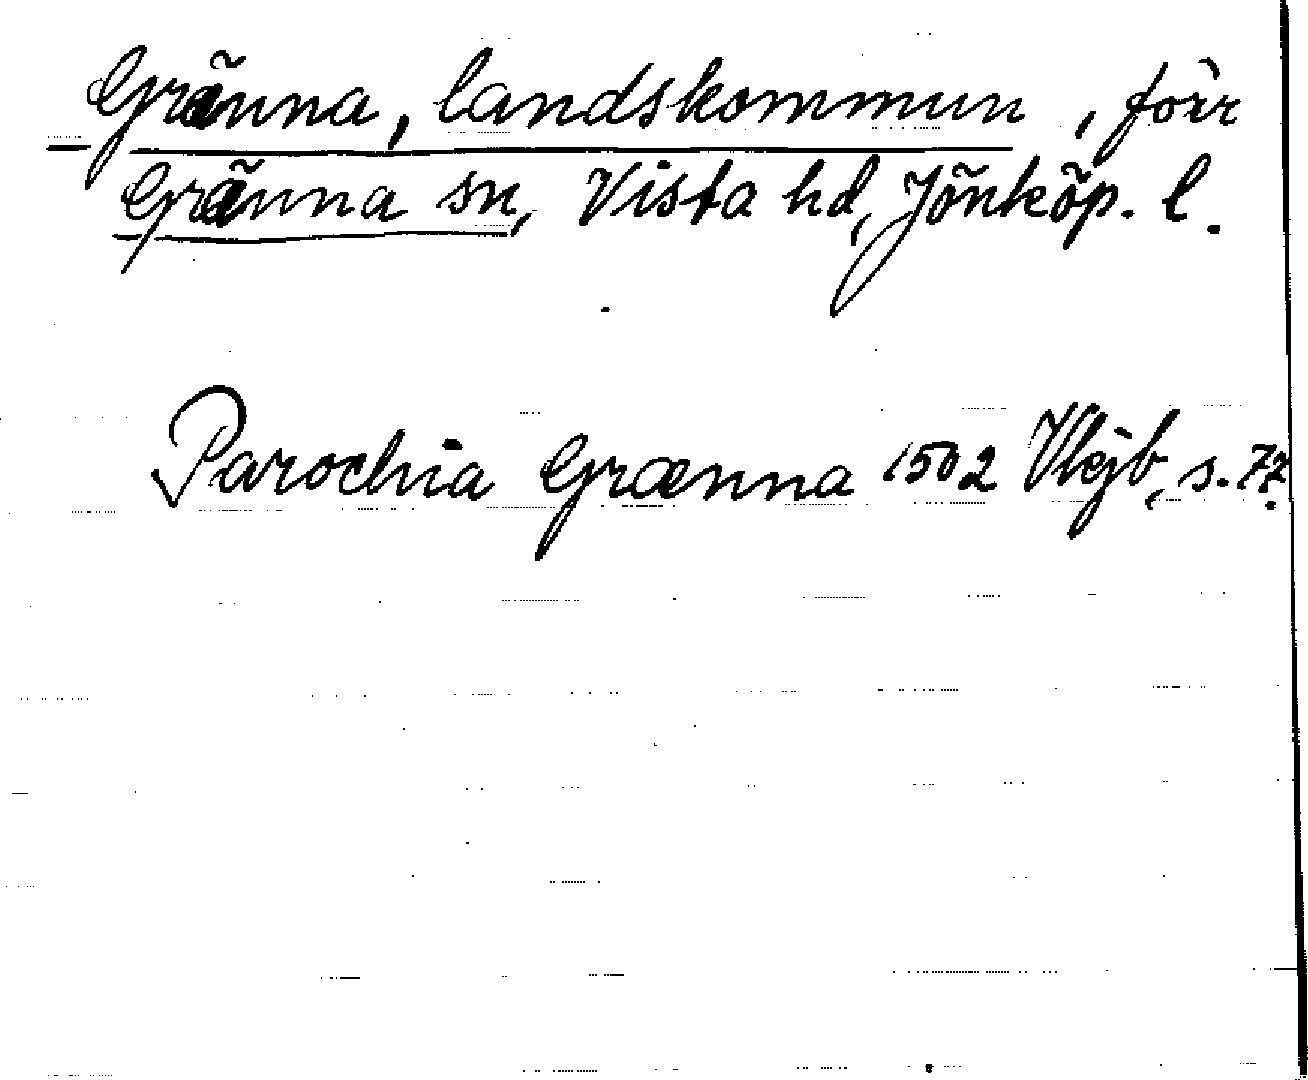 Gränna, landskommun, förr
Gränna sn, Vista hd, Jönköp. l.
Parochia Grænna 1502 Vkjb, s. 72.